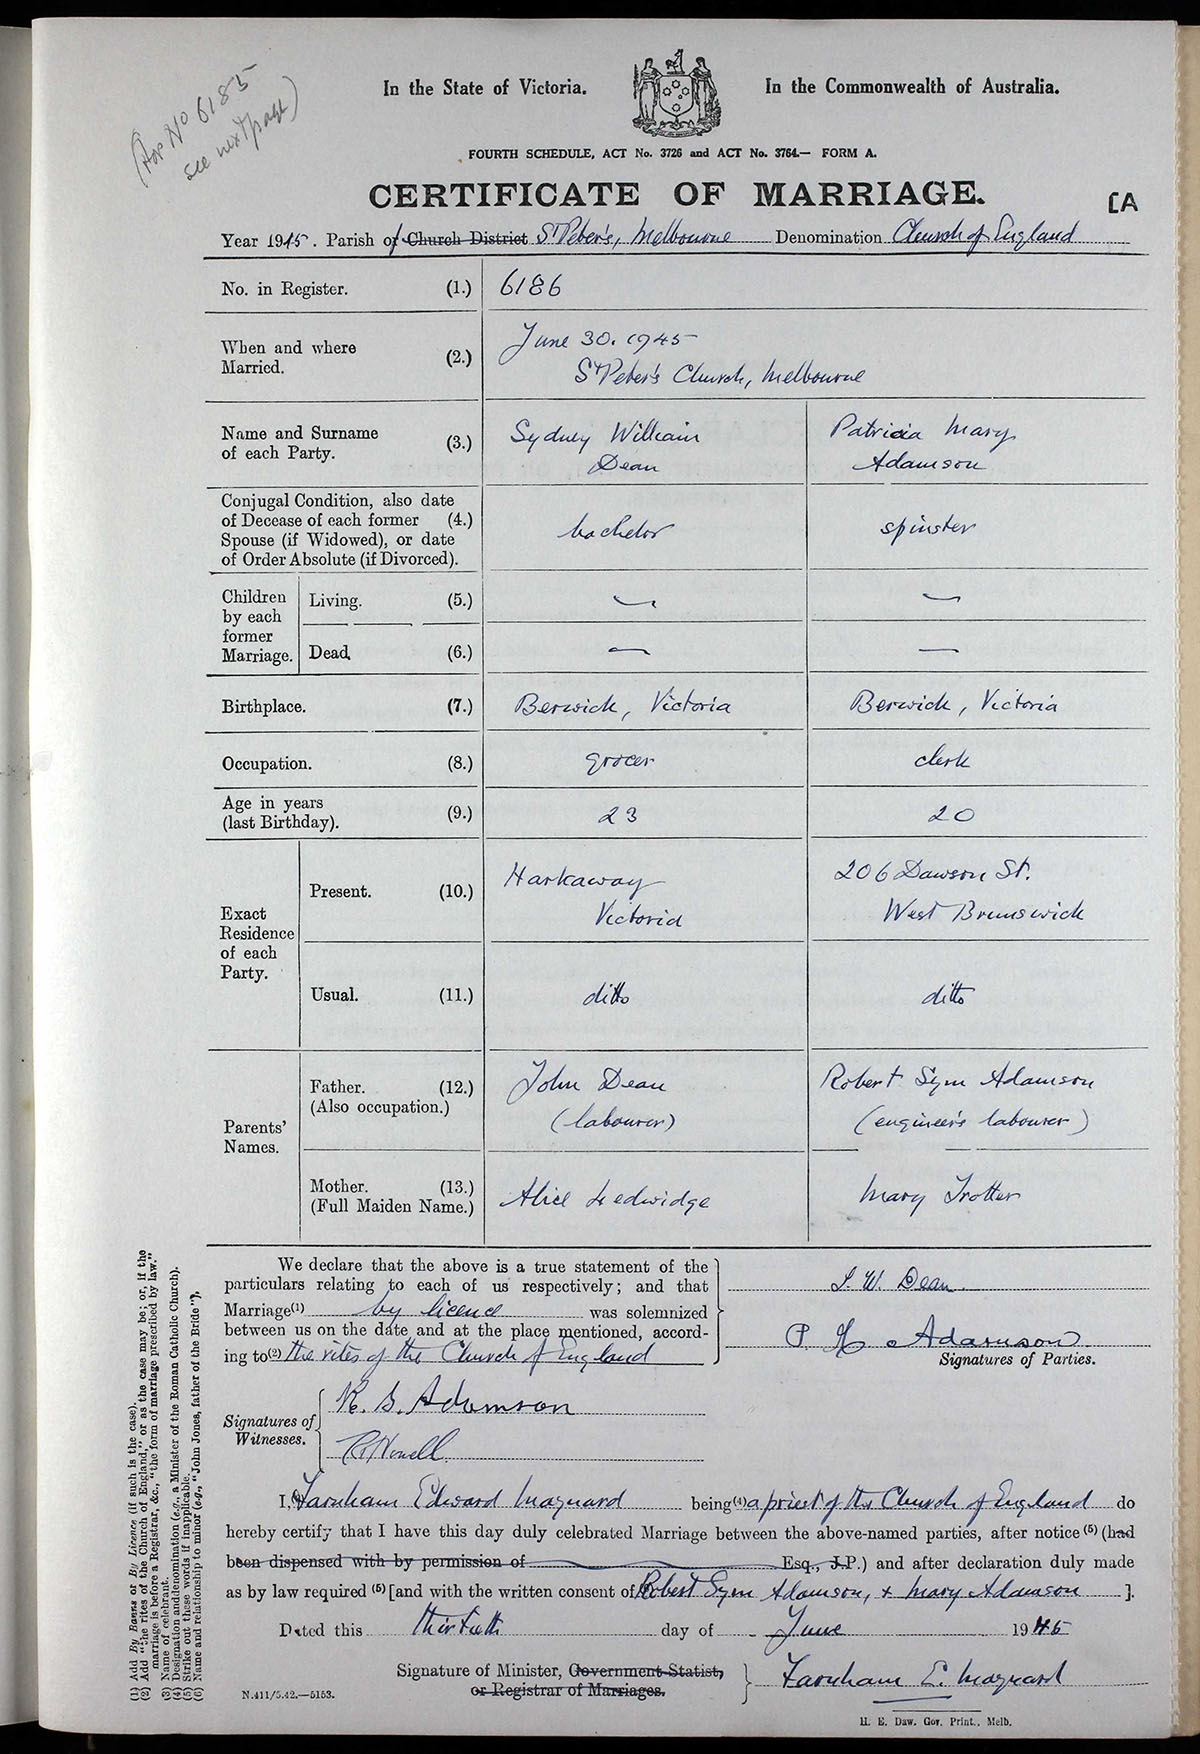 (For No 6185
see next page)
In the State of Victoria.
In the Commonwealth of Australia.
FOURTH SCHEDULE, ACT No. 3726 and ACT No. 3764.— FORM A.
CERTIFICATE OF MARRIAGE.
[A
Year 1945. Parish of Church District St Peter's, Melbourne Denomination Church of England
No. in Register. (1.) 6186
When and where Married. (2.) June 30. 1945
St Peter's Church, Melbourne
Name and Surname of each Party. (3.) Sydney William Dean Patricia Mary Adamson
Conjugal Condition, also date
of Decease of each former (4.)
Spouse (if Widowed), or date
of Order Absolute (if Divorced).
bachelor spinster
Children by each former Marriage.
Living. (5.) — —
Dead. (6.) — —
Birthplace. (7.) Berwick, Victoria Berwick, Victoria
Occupation. (8.) grocer clerk
Age in years (last Birthday). (9.) 23 20
Exact Residence of each Party.
Present. (10.) Harkaway Victoria 206 Dawson St. West Brunswick
Usual. (11.) ditto ditto
Parents' Names.
Father. (12.) (Also occupation.) John Dean (labourer) Robert Sym Adamson (engineer's labourer)
Mother. (13.) (Full Maiden Name.) Alice Ledwidge Mary Trotter
We declare that the above is a true statement of the
particulars relating to each of us respectively; and that
Marriage(1) by licence was solemnized
between us on the date and at the place mentioned, accord-
ing to(2) the rites of the Church of England
S. W. Dean
P. M. Adamson
Signatures of Parties.
Signatures of Witnesses.
R. S. Adamson
R Howell
I,(3) Farnham Edward Maynard being(4) a priest of the Church of England do
hereby certify that I have this day duly celebrated Marriage between the above-named parties, after notice (5) (had
been dispensed with by permission of Esq., J.P.) and after declaration duly made
as by law required (5) [and with the written consent of(6) Robert Sym Adamson, & Mary Adamson ].
Dated this thirtieth day of June 1945
Signature of Minister, Government Statist,
or Registrar of Marriages.
Farnham E. Maynard
N.411/5.42.—5153.
H. E. Daw. Gov. Print., Melb.
(1) Add By Banns or By Licence (if such is the case).
(2) Add "the rites of the Church of England," or as the case may be; or, if the
marriage is before a Registrar, &c., "the form of marriage prescribed by law."
(3) Name of celebrant.
(4) Designation and denomination (e.g., a Minister of the Roman Catholic Church).
(5) Strike out these words if inapplicable.
(6) Name and relationship to minor (e.g., "John Jones, father of the Bride").